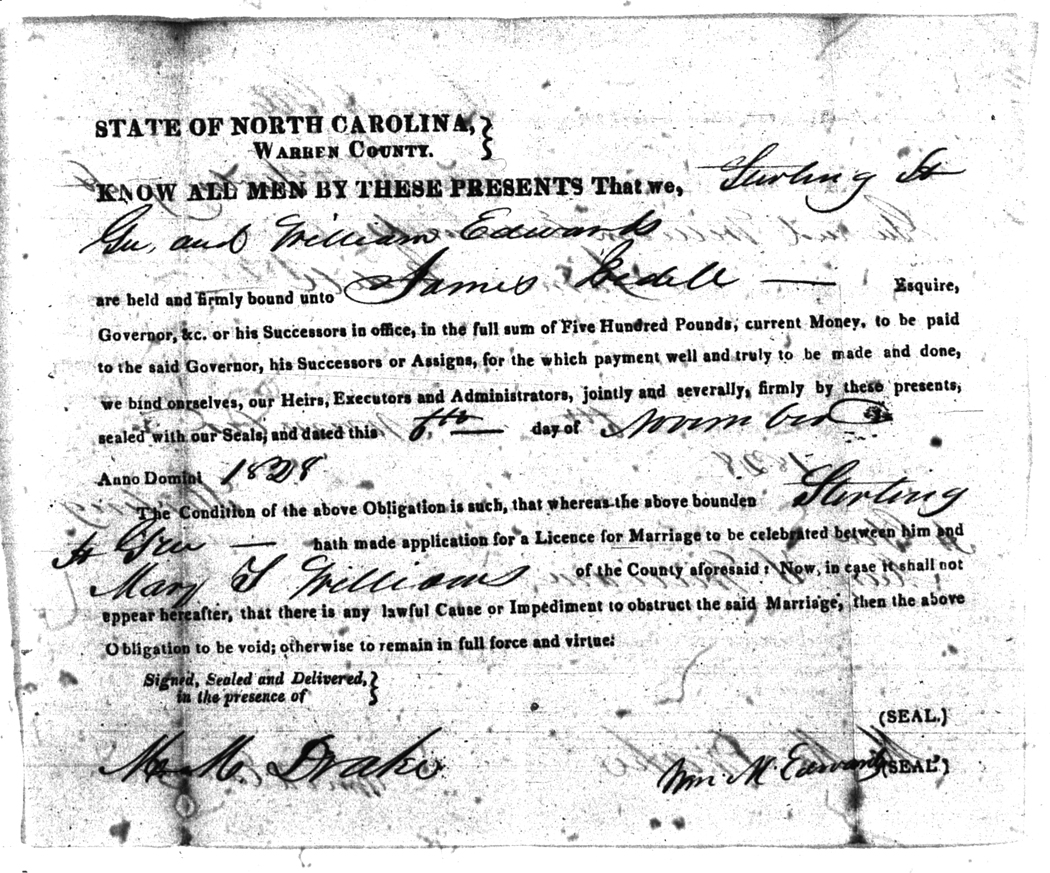 STATE OF NORTH CAROLINA,
WARREN COUNTY.
KNOW ALL MEN BY THESE PRESENTS That we, Sterling H
Gee, and William Edwards
are held and firmly bound unto James Iredell — Esquire,
Governor, &c. or his Successors in office, in the full sum of Five Hundred Pounds, current Money, to be paid
to the said Governor, his Successors or Assigns, for the which payment well and truly to be made and done,
we bind ourselves, our Heirs, Executors and Administrators, jointly and severally, firmly by these presents,
sealed with our Seals, and dated this day of November
Anno Domini 1828
The Condition of the above Obligation is such, that whereas the above bounden Sterling
H Gee — hath made application for a Licence for Marriage to be celebrated between him and
Mary T Williams of the County aforesaid: Now, in case it shall not
appear hereafter, that there is any lawful Cause or Impediment to obstruct the said Marriage, then the above
Obligation to be void; otherwise to remain in full force and virtue.
Signed, Sealed and Delivered,
in the presence of
(SEAL.)
M. M. Drake Wm M Edwards (SEAL.)